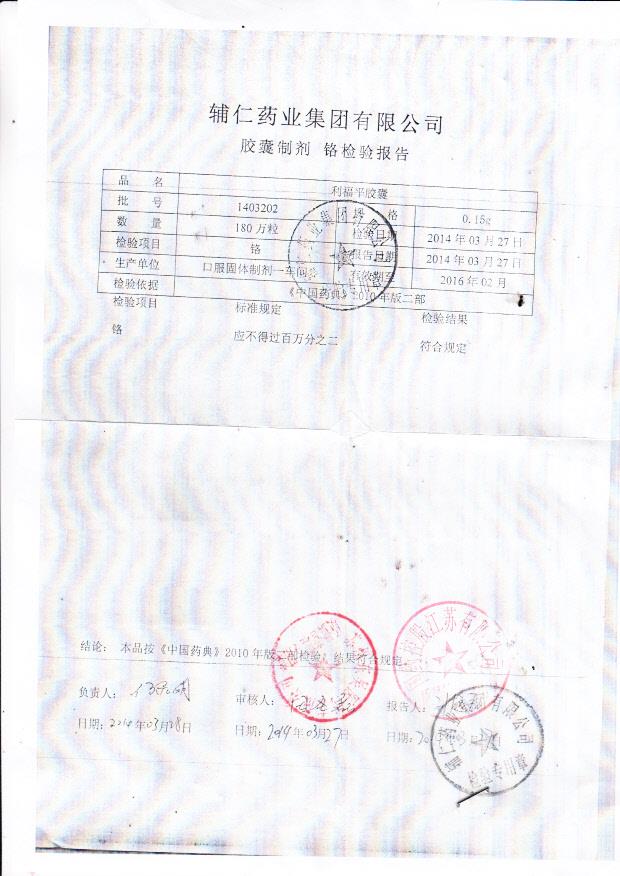 辅仁药业集团有限公司
胶囊制剂 铬检验报告
品 名 利福平胶囊
批 号 1403202 格 0.15g
数 量 180万粒 检验日期 2014年03月27日
检验项目 铬 报告日期 2014年03月27日
生产单位 口服固体制剂一车间 有效期至 2016年02月
检验依据 《中国药典》2010年版二部
检验项目 标准规定 检验结果
铬 应不得过百万分之二 符合规定
结论： 本品按《中国药典》2010年版二部检验，结果符合规定。
负责人： 审核人： 报告人：
日期：2014年03月28日 日期：2014年03月27日 日期：
辅仁药业 有限公司